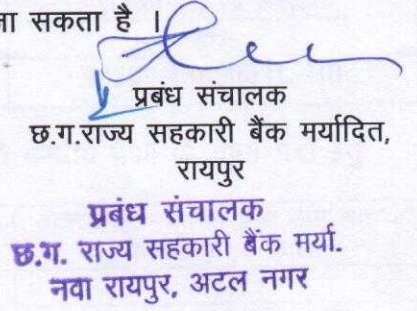 ना सकता है ।
प्रबंध संचालक
छ.ग.राज्य सहकारी बैंक मर्यादित,
रायपुर
प्रबंध संचालक
छ.ग. राज्य सहकारी बैंक मर्या.
नवा रायपुर, अटल नगर